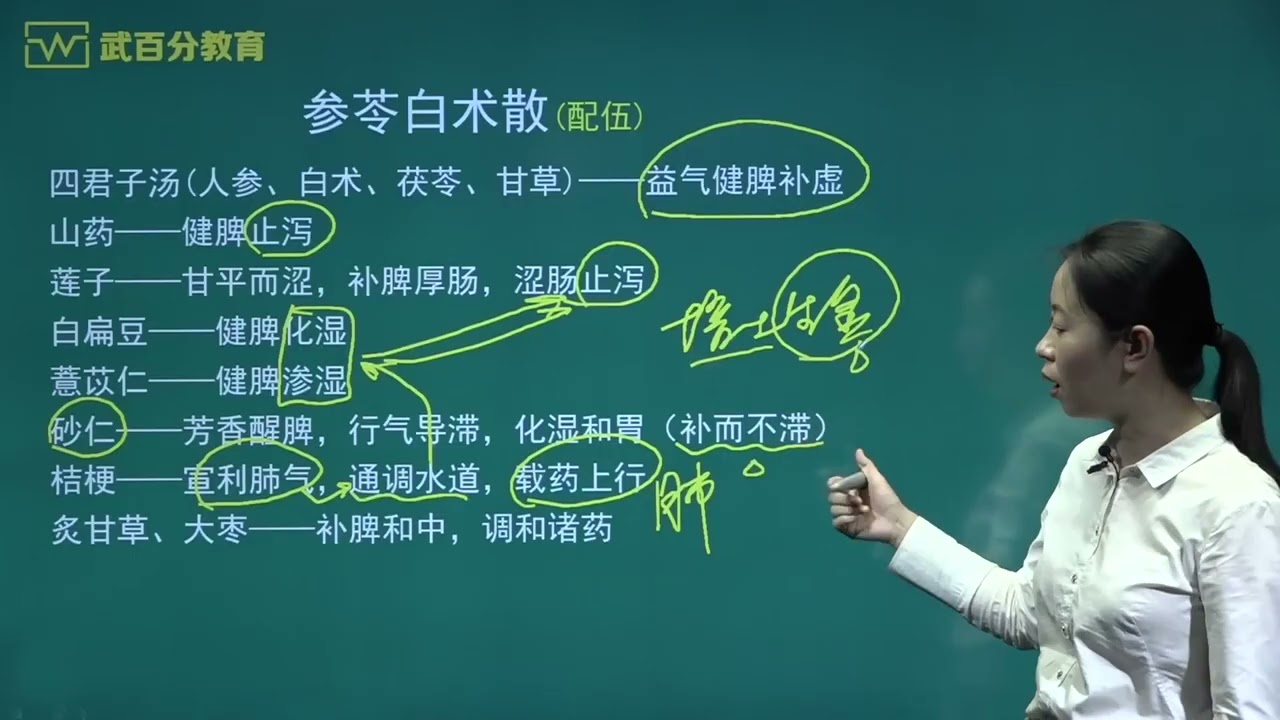 武百分教育
参苓白术散(配伍)
四君子汤(人参、白术、茯苓、甘草)——益气健脾补虚
山药——健脾止泻
莲子——甘平而涩，补脾厚肠，涩肠止泻
培土生金
白扁豆——健脾化湿
薏苡仁——健脾渗湿
砂仁——芳香醒脾，行气导滞，化湿和胃（补而不滞）
桔梗——宣利肺气，通调水道，载药上行
肺
炙甘草、大枣——补脾和中，调和诸药